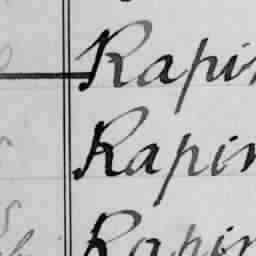 Rapin
Rapin
Rapin